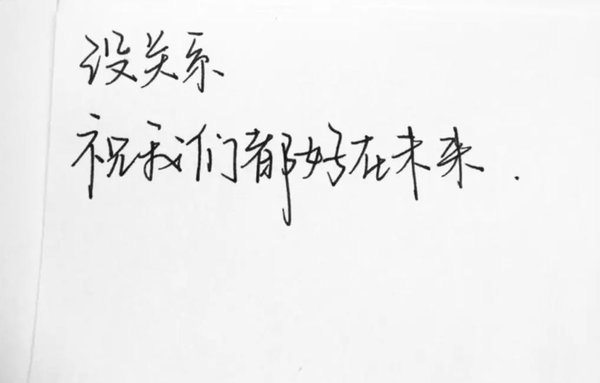 没关系
祝我们都好在未来.